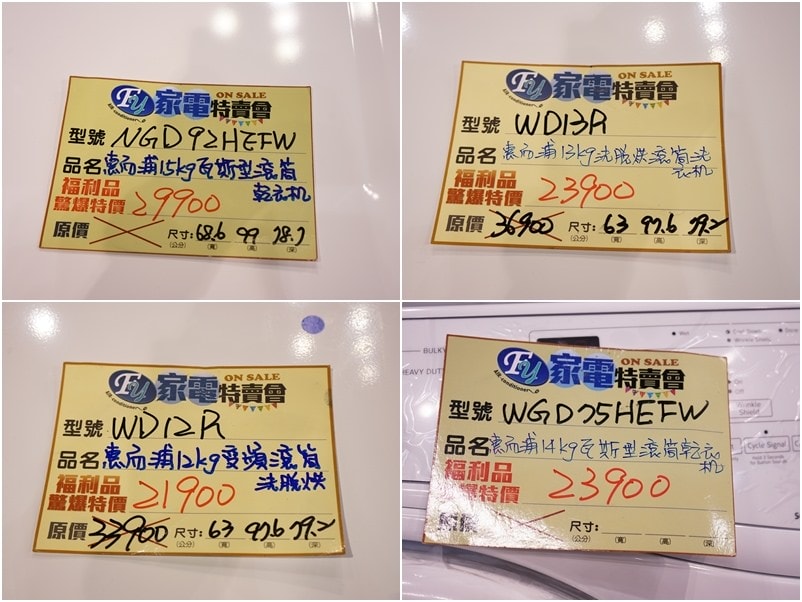 FU 家電特賣會 ON SALE
Air conditioner
型號 NGD92HEFW
品名 惠而浦15kg瓦斯型滾筒
乾衣机
福利品
驚爆特價 29900
原價 尺寸: 68.6 99 78.7
(公分) (寬) (高) (深)
FU 家電特賣會 ON SALE
Air conditioner
型號 WD13R
品名 惠而浦13kg洗脫烘滾筒洗
衣机
福利品
驚爆特價 23900
原價 36900 尺寸: 63 97.6 79.2
(公分) (寬) (高) (深)
FU 家電特賣會 ON SALE
Air conditioner
型號 WD12R
品名 惠而浦12kg变頻滾筒
洗脫烘
福利品
驚爆特價 21900
原價 33900 尺寸: 63 97.6 79.2
(公分) (寬) (高) (深)
FU 家電特賣會 ON SALE
Air conditioner
型號 WGD75HEFW
品名 惠而浦14kg瓦斯型滾筒乾衣
机
福利品
驚爆特價 23900
原價 尺寸:
(公分) (寬) (高) (深)
BULKY
HEAVY DUTY
Wet
On
Off
Wrinkle
Shield
Cycle Signal